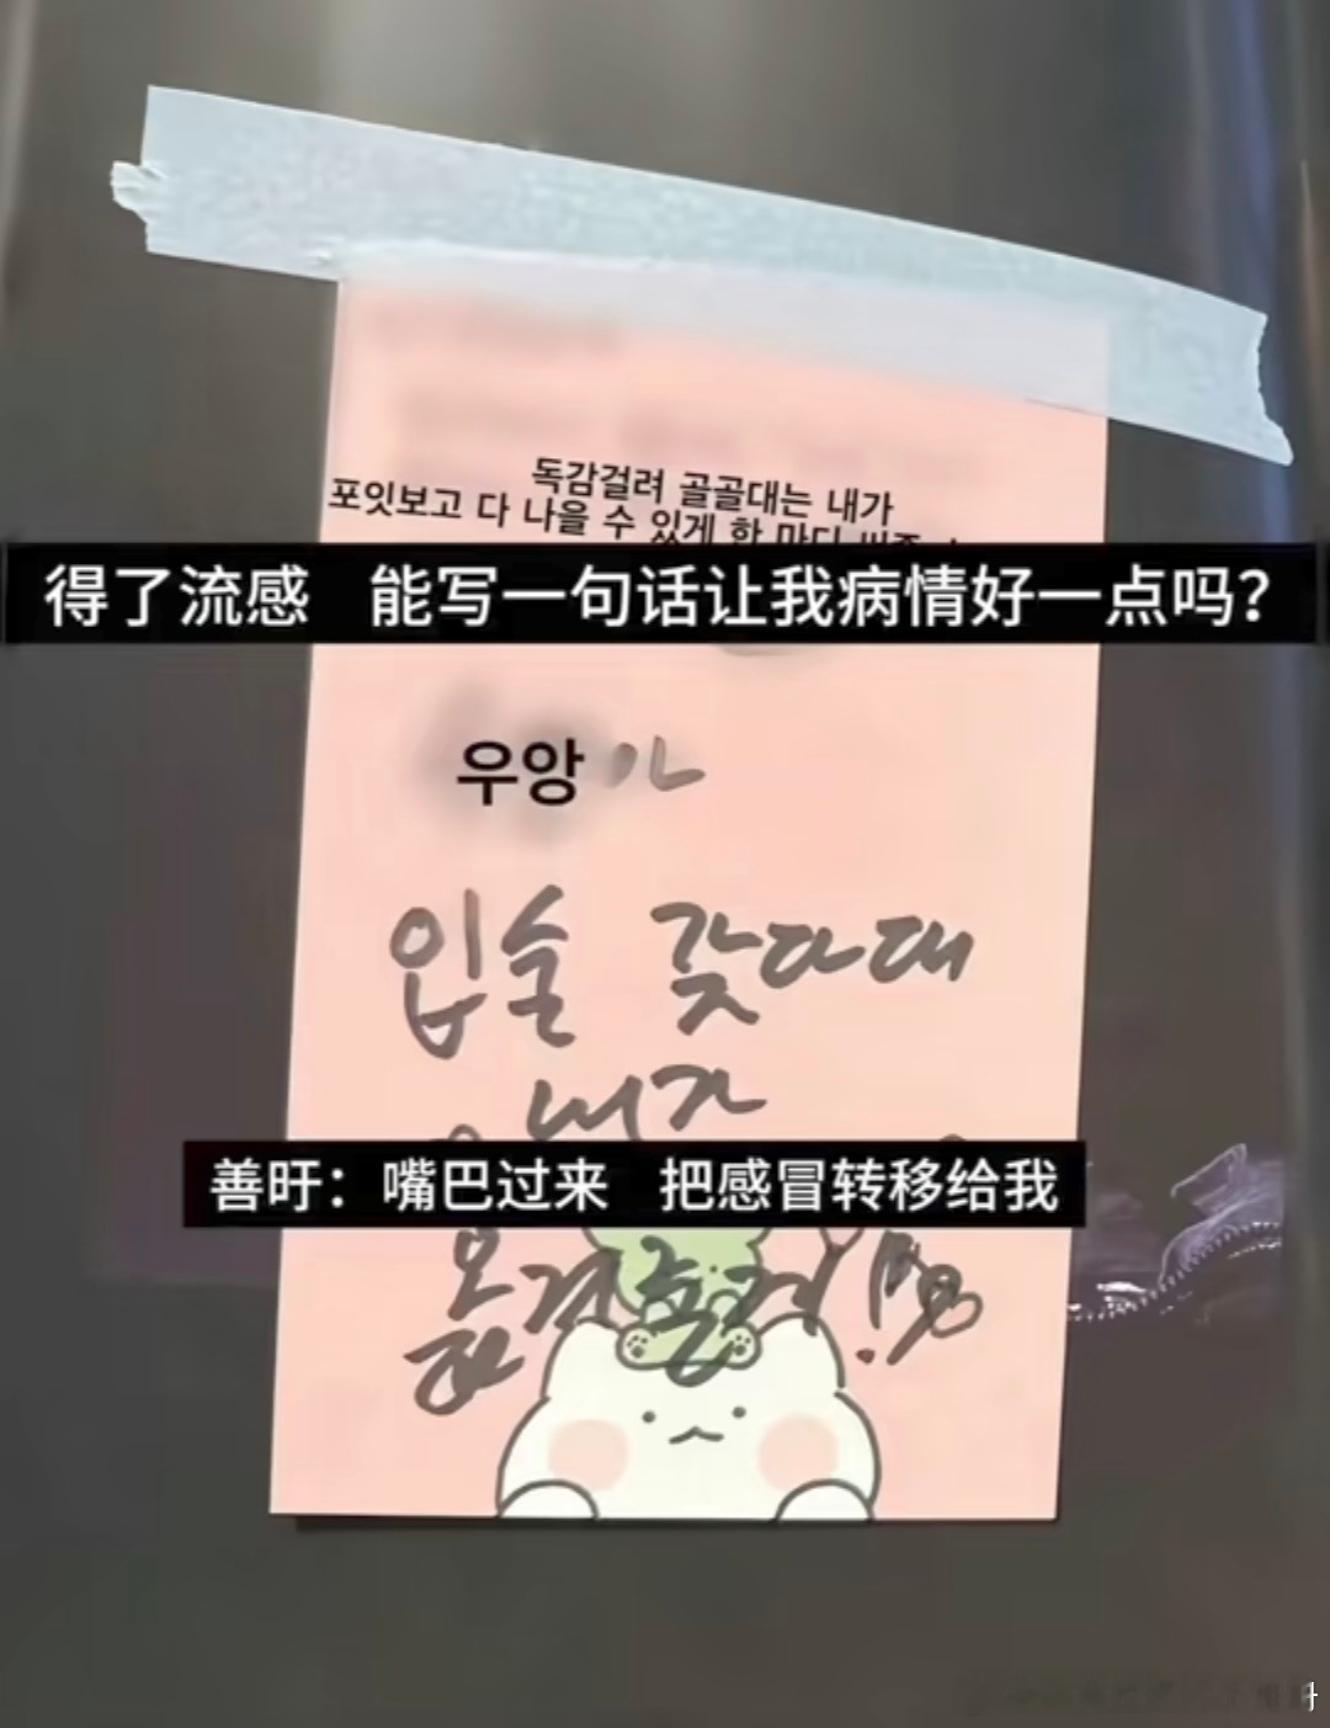 독감걸려 골골대는 내가
포잇보고 다 나을 수 있게 한 마디
得了流感 能写一句话让我病情好一点吗？
우앙
입술 갖다대
내가
善旴：嘴巴过来 把感冒转移给我